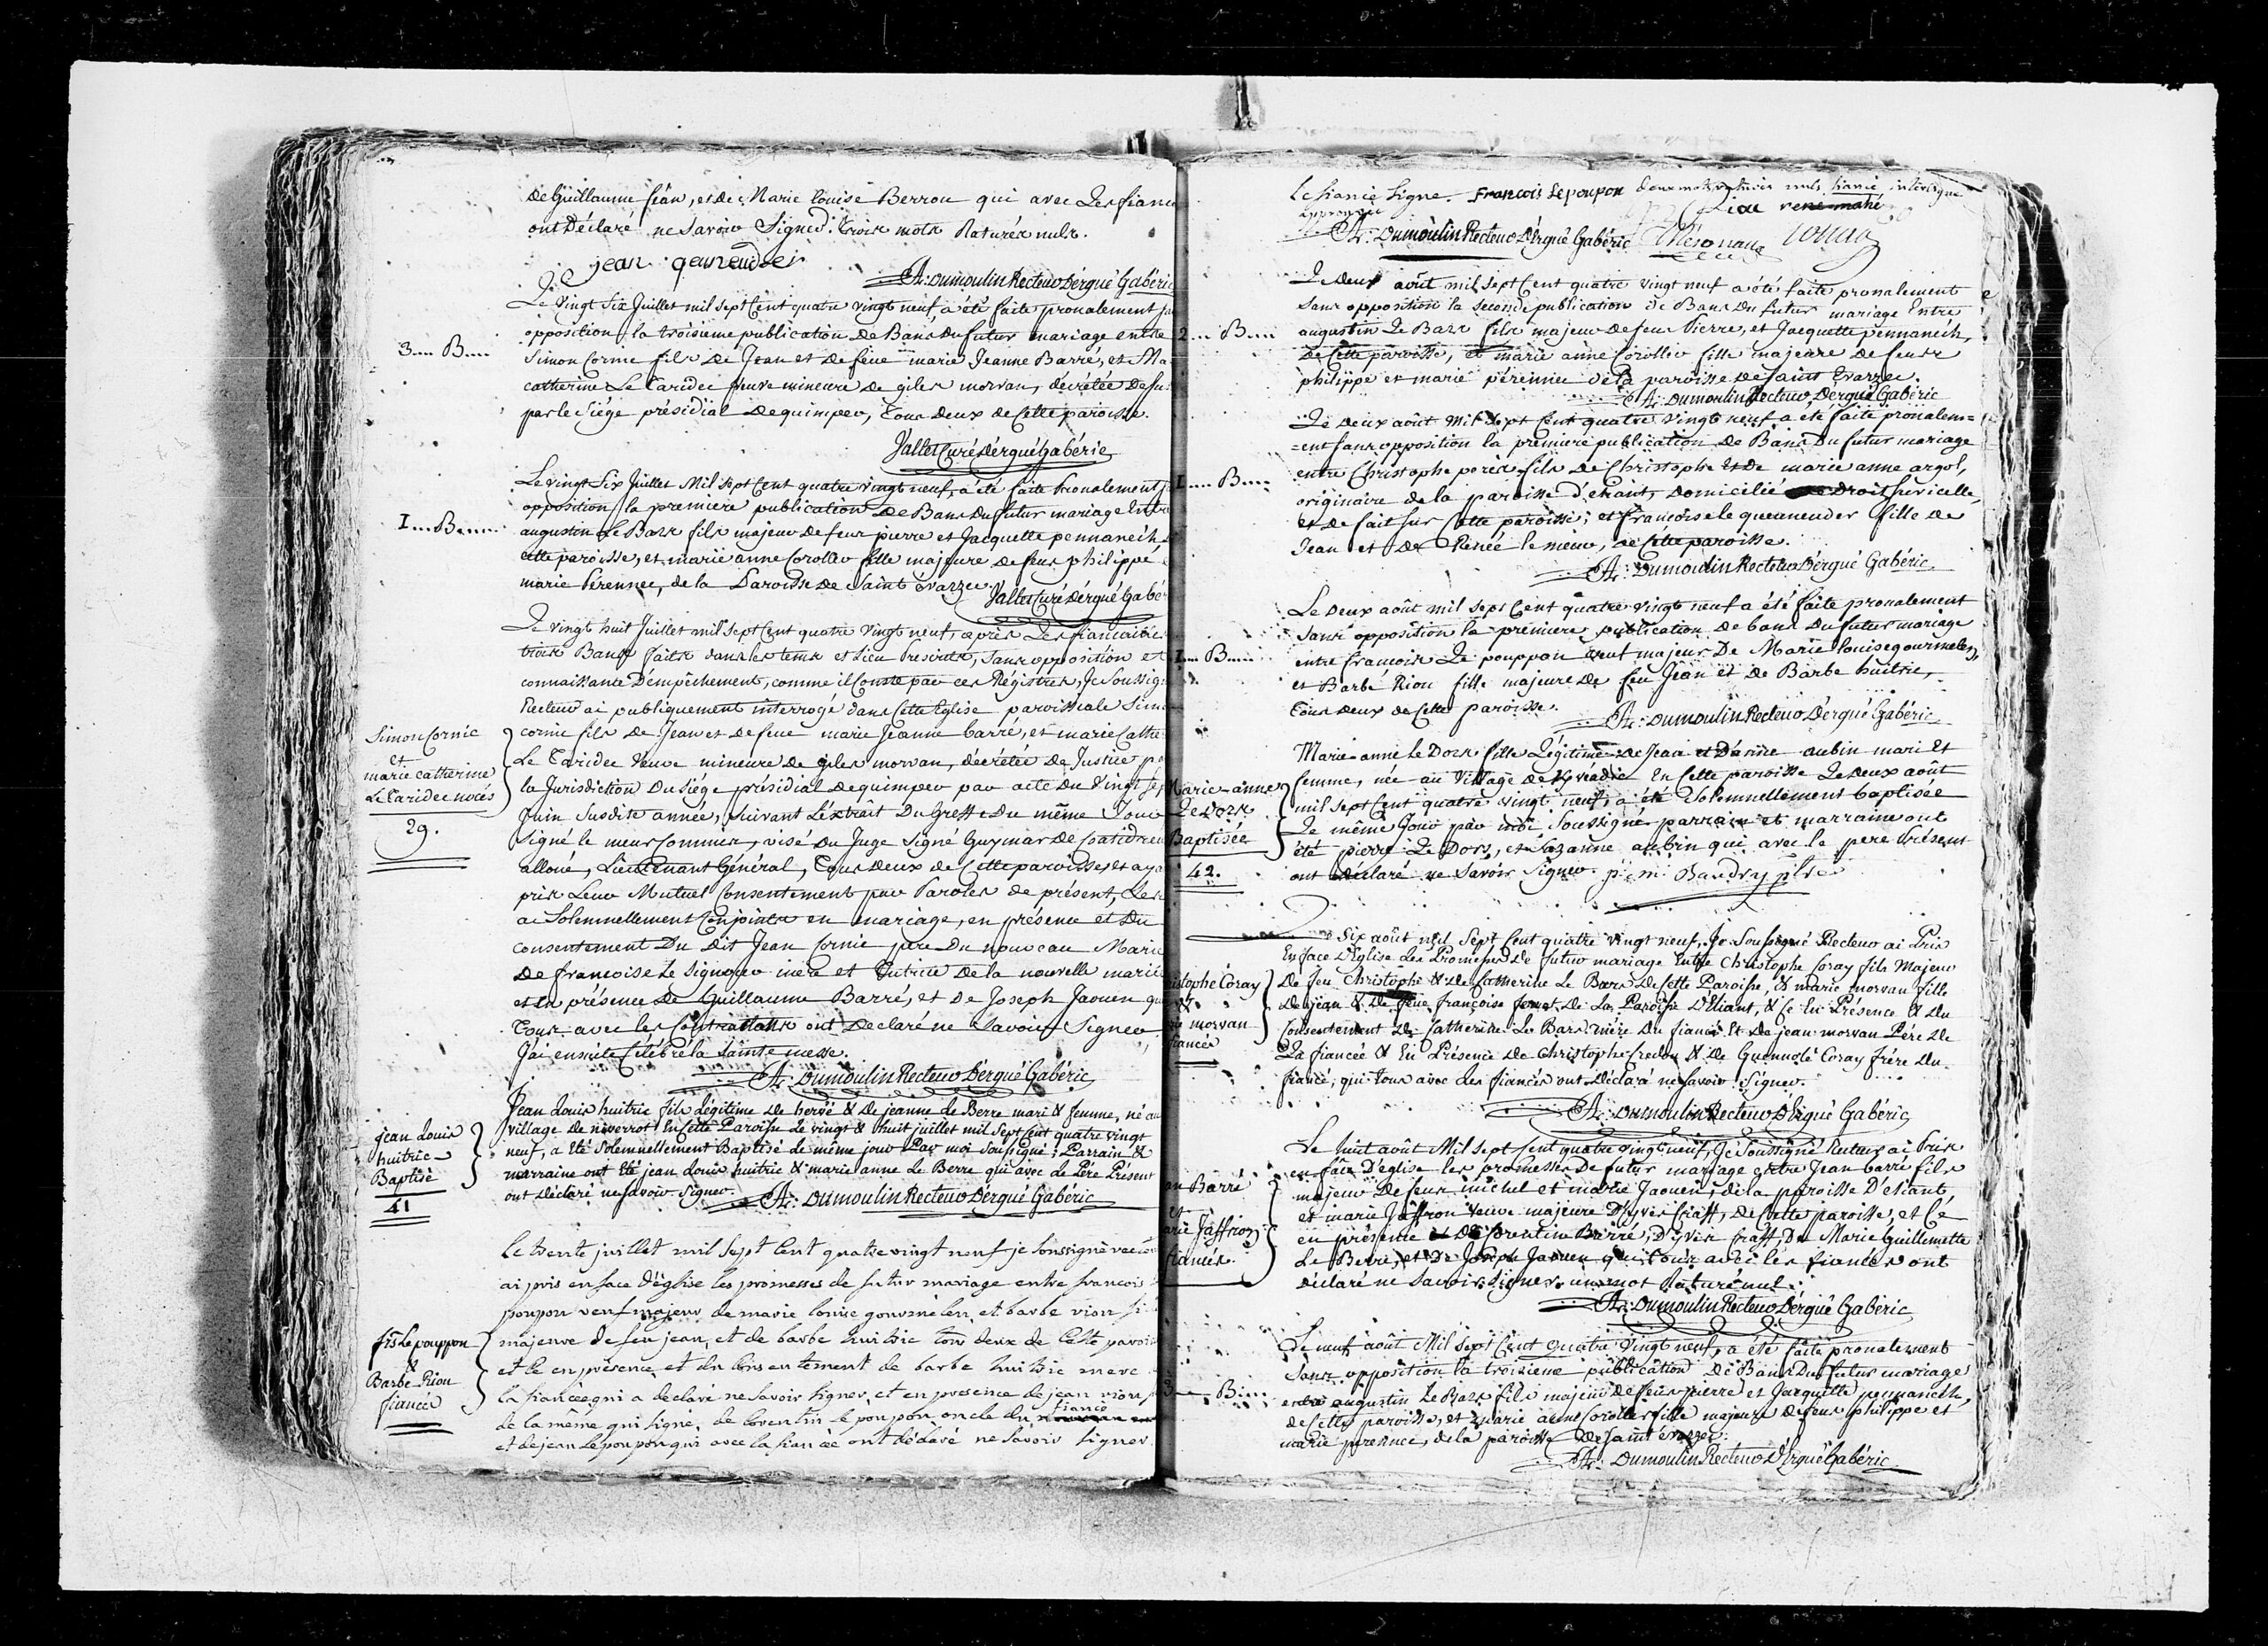 de Guillaume Jean, et de Marie louise Berrou qui avec Les fiancés
ont Déclaré ne Savoir Signer. trois mots Raturés nuls.
jean
A: Dumoulin Recteur D'ergué Gabéric
Le Vingt Six Juillet mil sept Cent quatre vingt neuf, a été faite pronalement
opposition la troisieme publication De Bans Du futur mariage entre
3.... B....
Simon Cornic fils De Jean et de feue marie Jeanne Barré, et
catherine Le Caridec veuve mineure de giles morvan, décrétée De
par le Siége présidial de quimper, Tous Deux de Cette paroisse.
Vallet Curé D'ergué Gabéric
Le vingt Six Juillet Mil Sept Cent quatre vingt neuf, a été faite Pronalement
opposition la premiere publication De Bans Du futur mariage
1.... B....
augustin Le Bars fils majeur de feus pierre et Jacquette pennaneich
cette paroisse, et marie anne Coroller fille majeure de feus philippe
marie Perennec, de la Paroisse de Saint évarzec.
Vallet Curé D'ergué Gabéric
Le vingt huit Juillet mil Sept Cent quatre vingt neuf, après Les fiancailles
trois Bans faits dans les tems et Lieu Prescrits, Sans opposition et
connaissance D'empêchement, comme il Conste par ces Régistres, Je Soussigné
Recteur ai publiquement interrogé dans Cette Eglise paroissiale
Simon Cornic
et
marie catherine
Le Caridec nocés
29.
cornic fils de Jean et de feue marie Jeanne barré, et marie
Le Caridec Veuve mineure de giles morvan, décrétée de Justice
la Jurisdiction Du Siége présidial de quimper par acte du Vingt
Juin Susdite année, Suivant L'éxtrait Du Greffe Du même Jour
Signé le meur Commier, visé Du Juge Signé Guymar De
alloué, Lieutenant Général, Tous Deux de Cette paroisse, et
pris Leur Mutuel Consentement par Paroles de présent,
ai Solemnellement Conjoints en mariage, en présence et Du
consentement Du Dit Jean Cornic pere Du nouveau Marié
De francoise Le Signour mere et Tutrice De la nouvelle mariée
et en présence de Guillaume Barré, et de Joseph Jaouen
Tous avec les Contractants ont Declaré ne Savoir Signer
J'ai ensuite Célébré la Sainte messe.
A: Dumoulin Recteur D'ergué Gabéric
jean Louis
huitric
Baptisé
41
Jean Louis huitric fils Légitime de hervé & de jeanne Le Berre mari & femme, né au
village de niverrot En Cette Paroisse Le vingt & huit juillet mil Sept cent quatre vingt
neuf, a Eté Solemnellement Baptisé Le même jour Par moi Soussigné; Parrain &
marraine ont Eté jean Louis huitric & marie anne Le Berre qui avec Le Pére Présent
ont Déclaré ne Savoir Signer.
A: Dumoulin Recteur D'ergué Gabéric
Le trente juillet mil Sept Cent quatre vingt neuf je Soussigné
ai pris en face d'église les promesses de futur mariage entre francois
poupon veuf majeur de marie louise gourmelen, et barbe riou
fs Lepouppon
&
Barbe Riou
fiancés
majeure de feu jean, et de barbe huitric tous deux de Cette
et Ce en présence et du Consentement de barbe huitric mere
la fiancée qui a declaré ne Savoir Signer, et en présence de jean riou
de la meme qui Signe, de Corentin le poupon oncle du fiancé
et de jean Lepoupon qui avec la fiancée ont déclaré ne Savoir Signer.
Le fiancé Signe. Francois Lepoupon deux mots raturés nuls, fiancé interligne
approuvé
Riou rene mahé
A: Dumoulin Recteur D'Ergué Gabéric
Le Deux août mil Sept Cent quatre vingt neuf a été faite pronalement
Sans opposition la Seconde publication de Bans Du futur mariage Entre
2.... B....
augustin Le Bars fils majeur de feus Pierre, et Jacquette pennaneich,
de Cette paroisse, et marie anne Coroller fille majeure de feus
philippe et marie pérennec de la paroisse de Saint Evarzec.
A: Dumoulin Recteur D'ergué Gabéric
Le Deux août Mil Sept Cent quatre vingt neuf a été faite pronalem=
=ent Sans opposition la premiere publication de Bans Du futur mariage
1.... B....
entre Christophe porés fils de Christophe Et De marie anne argol,
originaire de la paroisse d'eliant, Domicilié De Droit Sur icelle,
et de fait Sur Cette paroisse; et francoise le queneuder fille de
Jean et De Renée le meur, de Cette paroisse.
A: Dumoulin Recteur D'ergué Gabéric
Le Deux août mil Sept Cent quatre vingt neuf a été faite pronalement
Sans opposition la premiere publication de bans Du futur mariage
1.... B....
entre francois Le pouppon veuf majeur De Marie louise gourmelen,
et Barbe Riou fille majeure de feu Jean et de Barbe huitric,
Tous Deux de Cette paroisse.
A: Dumoulin Recteur D'ergué Gabéric
Marie-anne
Le Dors
Baptisée
42.
Marie-anne Le Dors fille Légitime de Jean et D'anne aubin mari Et
femme, née au Village de En Cette paroisse Le deux août
mil sept Cent quatre vingt neuf, a été Solemnellement baptisée
Le même Jour par moi Soussigné parrain et marraine ont
été pierre Le Dors, et Suzanne aubin qui avec le pere Présent
ont Déclaré ne Savoir Signer. Baudry ptre
Le Six août mil Sept Cent quatre vingt neuf, Je Soussigné Recteur ai Pris
En face d'Eglise Les Promesses de futur mariage Entre Christophe Coray fils Majeur
istophe Coray
&
morvan
fiancés
De feu Christophe & de Catherine Le Bars de Cette Paroisse, & marie morvan fille
de jean & de feue françoise de La Paroisse D'Eliant, & Ce En Présence & du
Consentement de Catherine Le Bars mère du fiancé Et de jean morvan Pére de
La fiancée & En Présence de Christophe Credou & de Guennolé Coray frére du
fiancé, qui Tous avec Les fiancés ont Déclaré ne Savoir Signer.
A: Dumoulin Recteur D'Ergué Gabéric
Le huit août Mil Sept Cent quatre vingt neuf, Je Soussigné Recteur ai Pris
en face d'église les promesses De futur mariage entre Jean barré fils
an Barré
et
arie Jaffron
fiancés.
majeur de feus michel et marie Jaouen, de la paroisse D'eliant,
et marie Jaffron veuve majeure D'yves Craff, de Cette paroisse, et Ce
en présence de Corentin Barré, D'yves Craff, De Marie Guillemette
Le Berre, et De Joseph Jaouen qui tous avec les fiancés ont
déclaré ne Savoir Signer. un mot Raturé nul.
A: Dumoulin Recteur D'ergué Gabéric
Le neuf août Mil Sept Cent quatre vingt neuf, a été faite pronalement
Sans opposition la troisieme publication De Bans Du futur mariage
3.... B....
entre augustin Le Bars fils majeur de feus pierre et Jacquette pennaneich,
de Cette paroisse, et marie anne Coroller fille majeure de feus philippe et
marie perennec, de la paroisse de Saint évarzec.
A: Dumoulin Recteur D'Ergué Gabéric